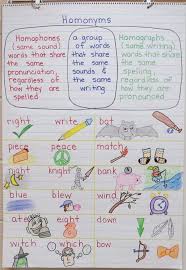 Homonyms
Homophones
(same sound)
words that share
the same
pronunciation,
regardless of
how they are
spelled
a group
of words
that share
the same
sounds &
the same
writing
Homographs
(same writing)
words that
share the
same
spelling,
regardless of
how they are
pronounced
right write bat
piece peace match
night knight bank
blue blew wind
ate eight down
witch which bow